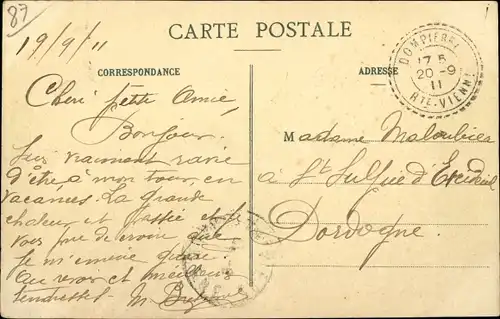 87
CARTE POSTALE
19/9/11
CORRESPONDANCE
ADRESSE
DOMPIERRE
17 5
20 -9
11
HTE-VIENNE
Chère petite Amie,
Bonjour.
Suis vraiment ravie
d'être à mon tour, en
vacances. La grande
chaleur est passée et je
vous prie de croire que
je m'ennuie guère.
Au revoir et meilleures
tendresses. M.
Madame
à St Sulpice d'Excideuil
Dordogne.